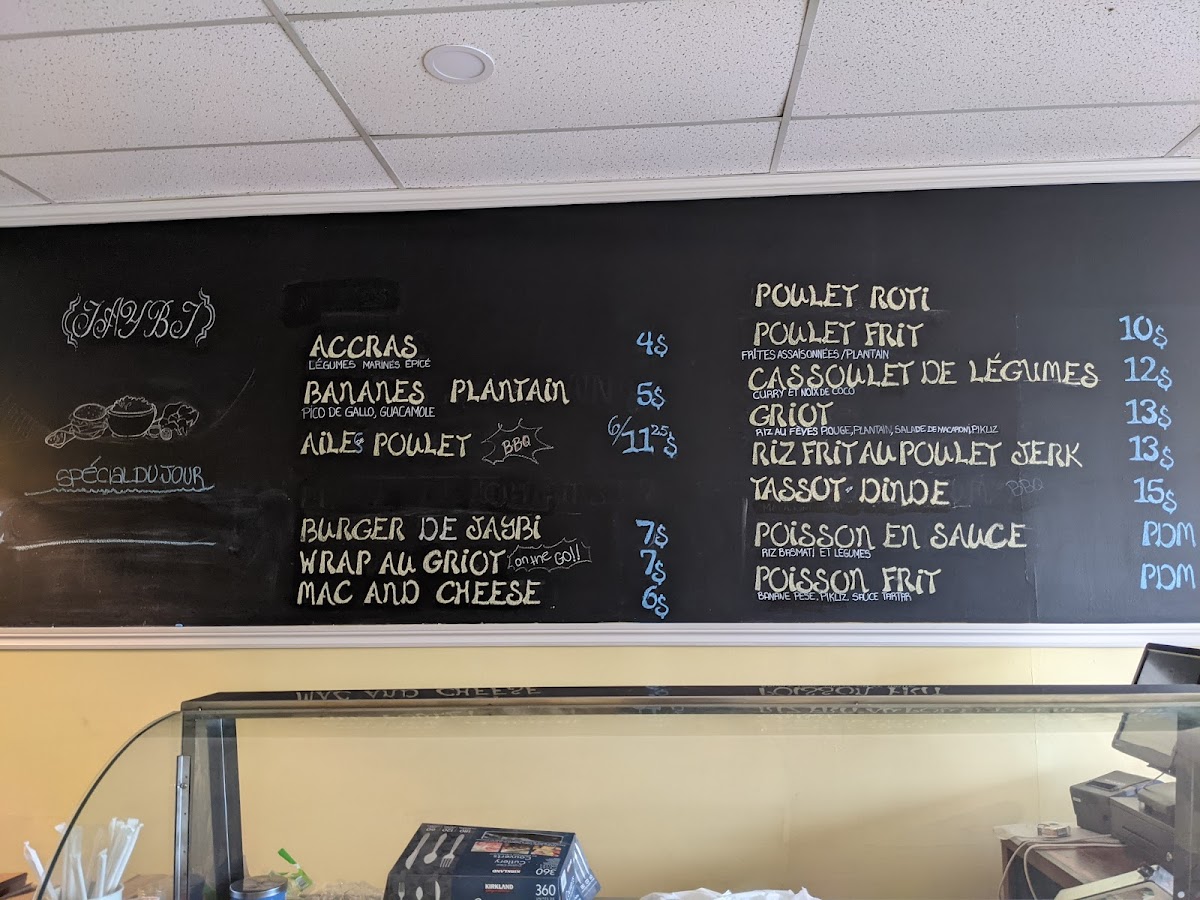 JAYBJ
SPÉCIAL DU JOUR
ACCRAS 4$
LÉGUMES MARINÉS ÉPICÉ
BANANES PLANTAIN 5$
PICO DE GALLO, GUACAMOLE
AILES POULET BBQ 6/11 25$
BURGER DE JAYBI 7$
WRAP AU GRIOT on the GO!! 7$
MAC AND CHEESE 6$
POULET ROTI
POULET FRIT 10$
FRITES ASSAISONNÉES / PLANTAIN
CASSOULET DE LÉGUMES 12$
CURRY ET NOIX DE COCO
GRIOT 13$
RIZ AU FÈVES ROUGE, PLANTAIN, SALADE DE MACARONI, PIKLIZ
RIZ FRIT AU POULET JERK 13$
TASSOT DINDE 15$
POISSON EN SAUCE PDM
RIZ BASMATI ET LÉGUMES
POISSON FRIT PDM
BANANE PESE, PIKLIZ, SAUCE TARTAR
Cutlery
Couverts
360
KIRKLAND
360